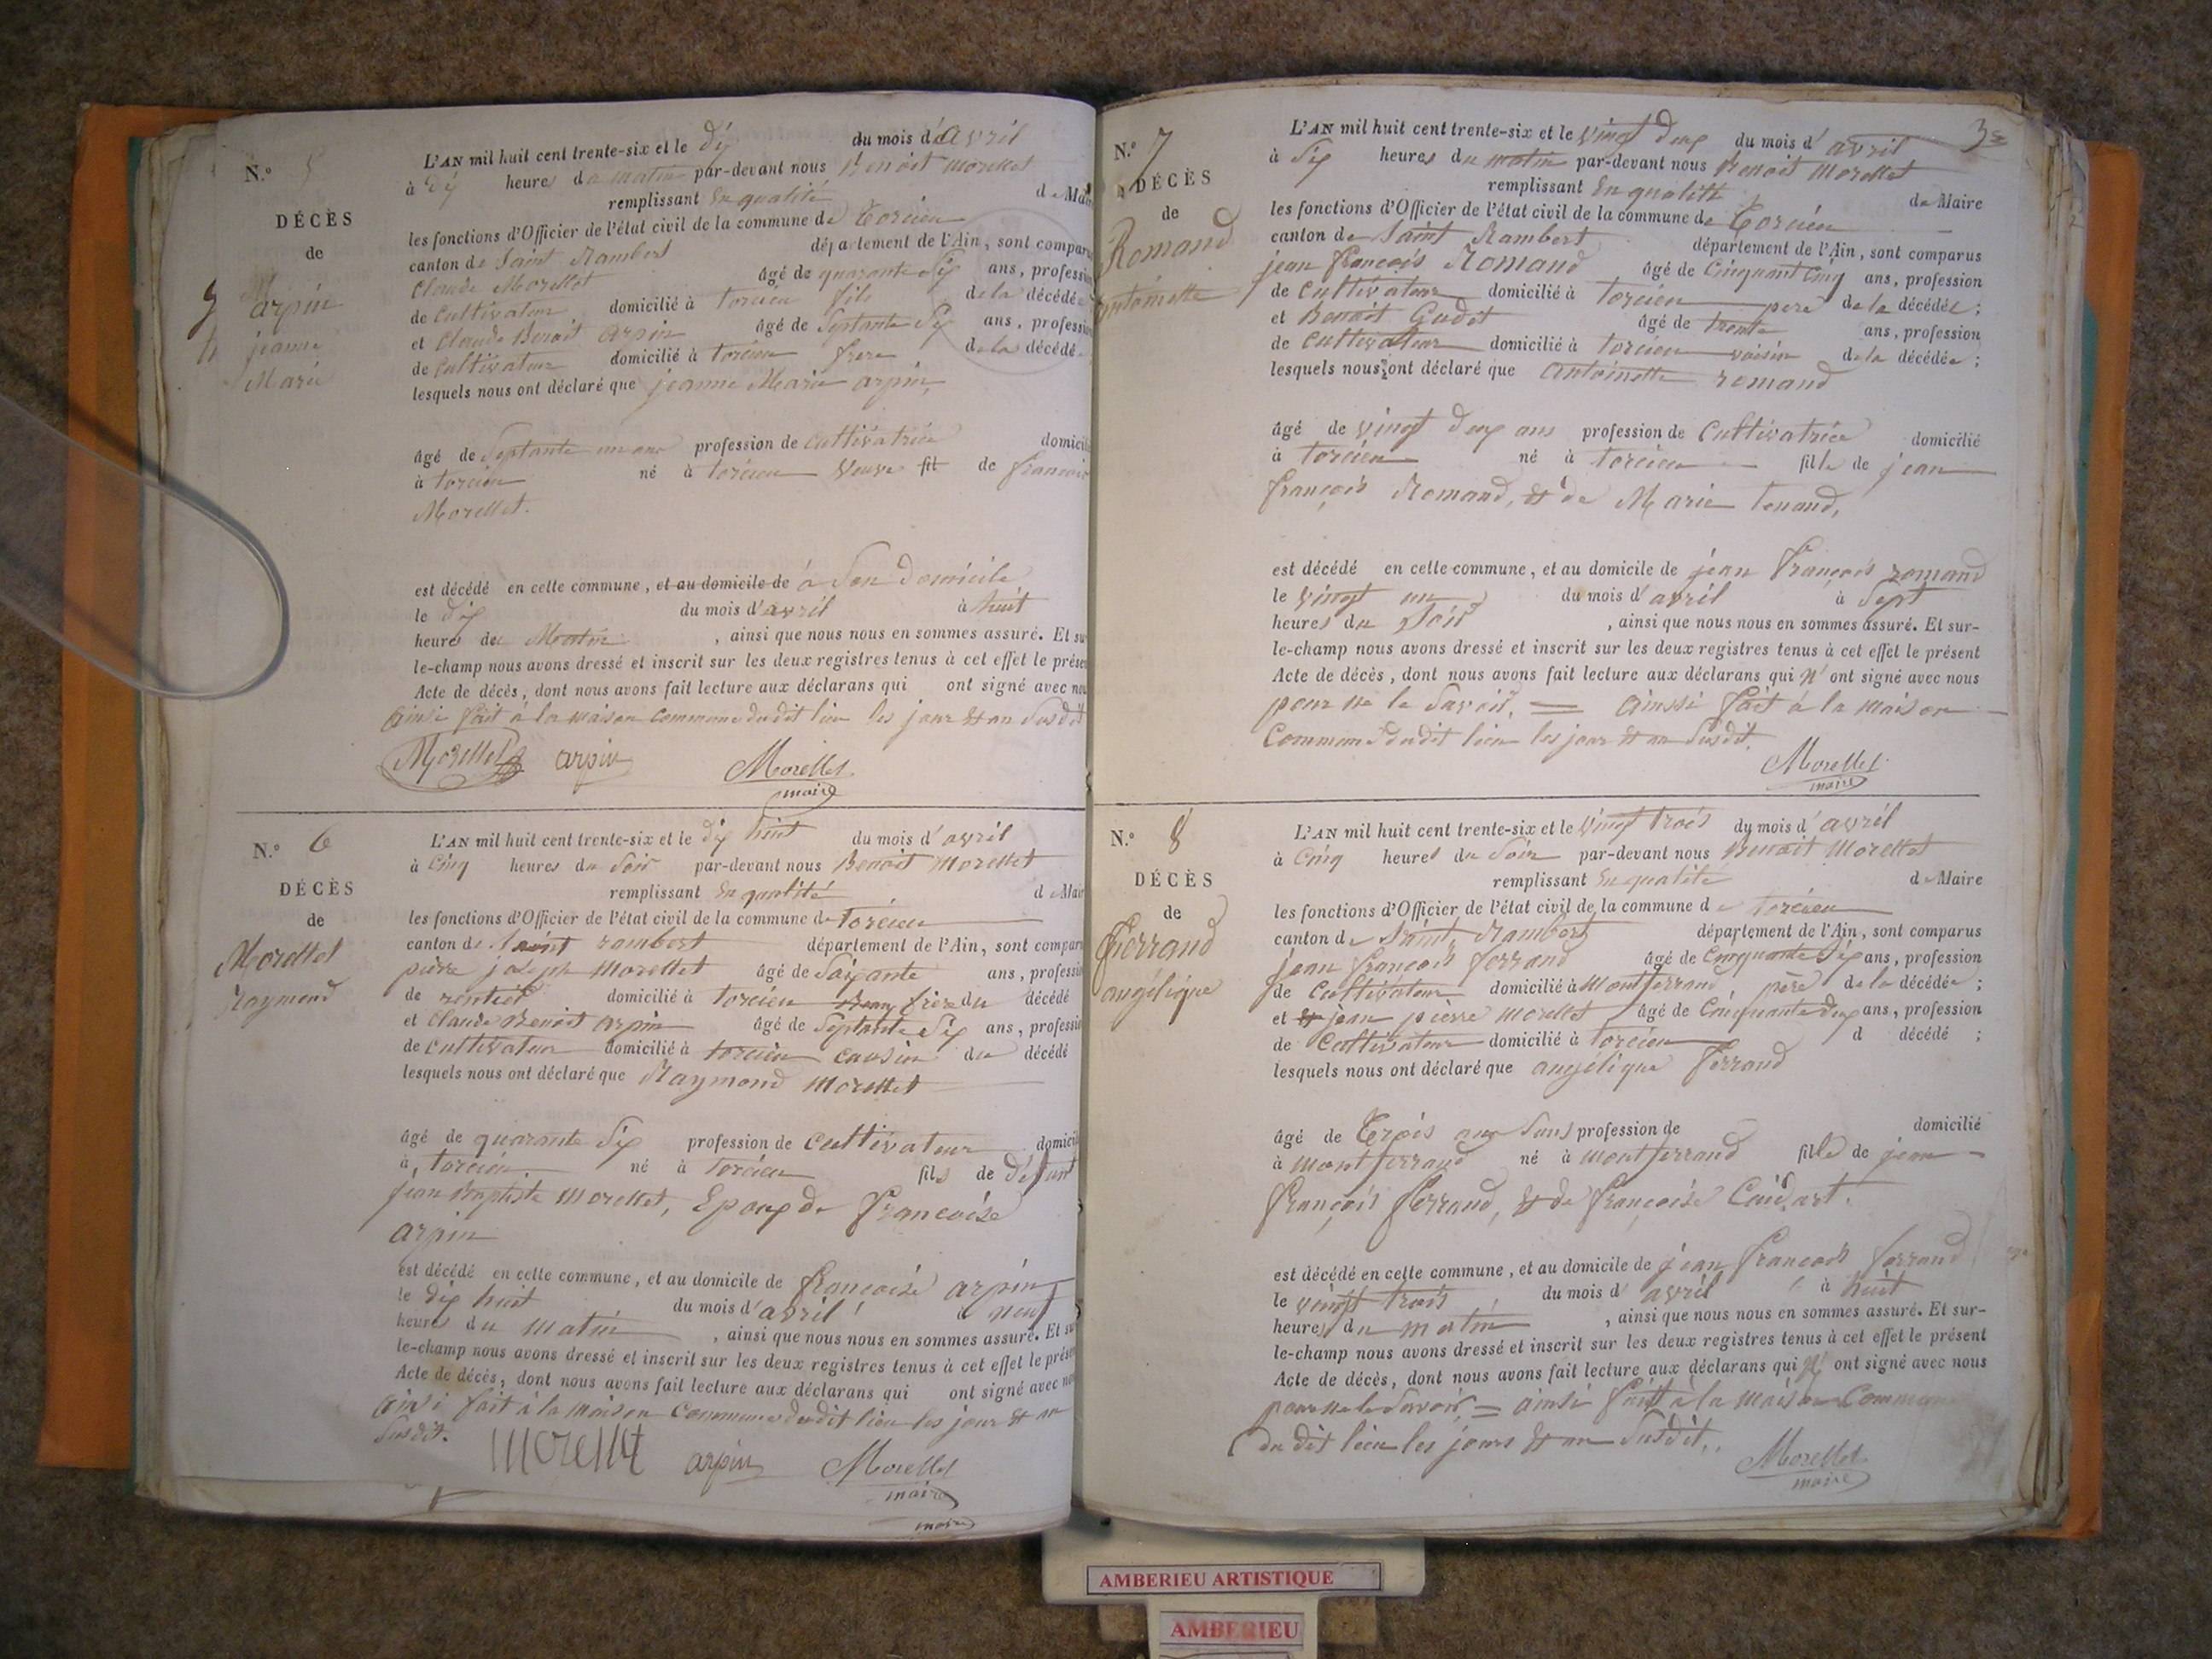 N.° 5
DÉCÈS
de
Arpin
jeanne
Marie
L'AN mil huit cent trente-six et le dix du mois d'avril
à dix heures du matin par-devant nous Benoit Morellet
remplissant En qualité de Maire
les fonctions d'Officier de l'état civil de la commune de Torcieu
canton de Saint Rambert département de l'Ain, sont comparus
Claude Morellet âgé de quarante Six ans, profession
de cultivateur domicilié à torcieu fils de la décédée
et Claude Benoit arpin âgé de Septante Six ans, profession
de Cultivateur domicilié à torcieu frere de la décédée
lesquels nous ont déclaré que jeanne Marie arpin,
âgé de Septante un ans profession de Cultivatrice domicilié
à torcieu né à torcieu Veuve fil de françois
Morellet.
est décédé en cette commune, et au domicile de à Son domicile
le dix du mois d'avril à huit
heures du Matin, ainsi que nous nous en sommes assuré. Et sur-
le-champ nous avons dressé et inscrit sur les deux registres tenus à cet effet le présent
Acte de décès, dont nous avons fait lecture aux déclarans qui ont signé avec nous
ainsi fait à la maison commune du dit lieu les jour & an Susdit
Morellet arpin Morellet
maire
N.° 6
DÉCÈS
de
Morellet
Raymond
L'AN mil huit cent trente-six et le dix huit du mois d'avril
à Cinq heures du Soir par-devant nous Benoit Morellet
remplissant En qualité de Maire
les fonctions d'Officier de l'état civil de la commune de torcieu
canton de Saint rambert département de l'Ain, sont comparus
pierre joseph Morellet âgé de Soixante ans, profession
de rentier domicilié à torcieu frère du décédé
et Claude Benoit arpin âgé de Septante Six ans, profession
de cultivateur domicilié à torcieu cousin du décédé
lesquels nous ont déclaré que Raymond Morellet
âgé de quarante Six profession de cultivateur domicilié
à torcieu né à torcieu fils de défunt
jean Baptiste Morellet, Epoux de Françoise
arpin
est décédé en cette commune, et au domicile de françoise arpin
le dix huit du mois d'avril à neuf
heures du matin, ainsi que nous nous en sommes assuré. Et sur-
le-champ nous avons dressé et inscrit sur les deux registres tenus à cet effet le présent
Acte de décès, dont nous avons fait lecture aux déclarans qui ont signé avec nous
ainsi fait à la maison Commune du dit lieu les jour & an
Susdit.
Morellet arpin Morellet
maire
maire
3
N.° 7
DÉCÈS
de
Romand
antoinette
L'AN mil huit cent trente-six et le vingt deux du mois d'avril
à Six heures du matin par-devant nous Benoit Morellet
remplissant En qualité de Maire
les fonctions d'Officier de l'état civil de la commune de Torcieu
canton de Saint Rambert département de l'Ain, sont comparus
jean françois Romand âgé de Cinquant Cinq ans, profession
de Cultivateur domicilié à torcieu pere de la décédée;
et Benoit Gudet âgé de trente ans, profession
de Cultivateur domicilié à torcieu voisin de la décédée;
lesquels nous ont déclaré que Antoinette romand
âgé de vingt deux ans profession de Cultivatrice domicilié
à torcieu né à torcieu fille de jean
françois Romand, & de Marie tenand,
est décédé en cette commune, et au domicile de jean François romand
le vingt un du mois d'avril à Sept
heures du Soir, ainsi que nous nous en sommes assuré. Et sur-
le-champ nous avons dressé et inscrit sur les deux registres tenus à cet effet le présent
Acte de décès, dont nous avons fait lecture aux déclarans qui n'ont signé avec nous
pour ne le Savoir. = ainssi fait à la maison
Commune du dit lieu les jour & an Susdit.
Morellet
maire
N.° 8
DÉCÈS
de
Ferrand
angélique
L'AN mil huit cent trente-six et le vingt trois du mois d'avril
à Cinq heures du Soir par-devant nous Benoit Morellet
remplissant En qualité de Maire
les fonctions d'Officier de l'état civil de la commune de torcieu
canton de Saint Rambert département de l'Ain, sont comparus
jean François ferrand âgé de Cinquante Six ans, profession
de Cultivateur domicilié à Montferrand père de la décédée;
et & jean pierre Morellet âgé de Cinquante deux ans, profession
de Cultivateur domicilié à torcieu d décédé;
lesquels nous ont déclaré que angélique Ferrand
âgé de Trois ans Sans profession de domicilié
à montferrand né à montferrand fille de jean
François ferrand, & de françoise
est décédé en cette commune, et au domicile de jean françois ferrand
le vingt trois du mois d'avril à huit
heures du matin, ainsi que nous nous en sommes assuré. Et sur-
le-champ nous avons dressé et inscrit sur les deux registres tenus à cet effet le présent
Acte de décès, dont nous avons fait lecture aux déclarans qui n'ont signé avec nous
pour ne le Savoir, = ainsi fait à la maison Commune
du dit lieu les jours & an Susdit.
Morellet
maire
AMBERIEU ARTISTIQUE
AMBERIEU